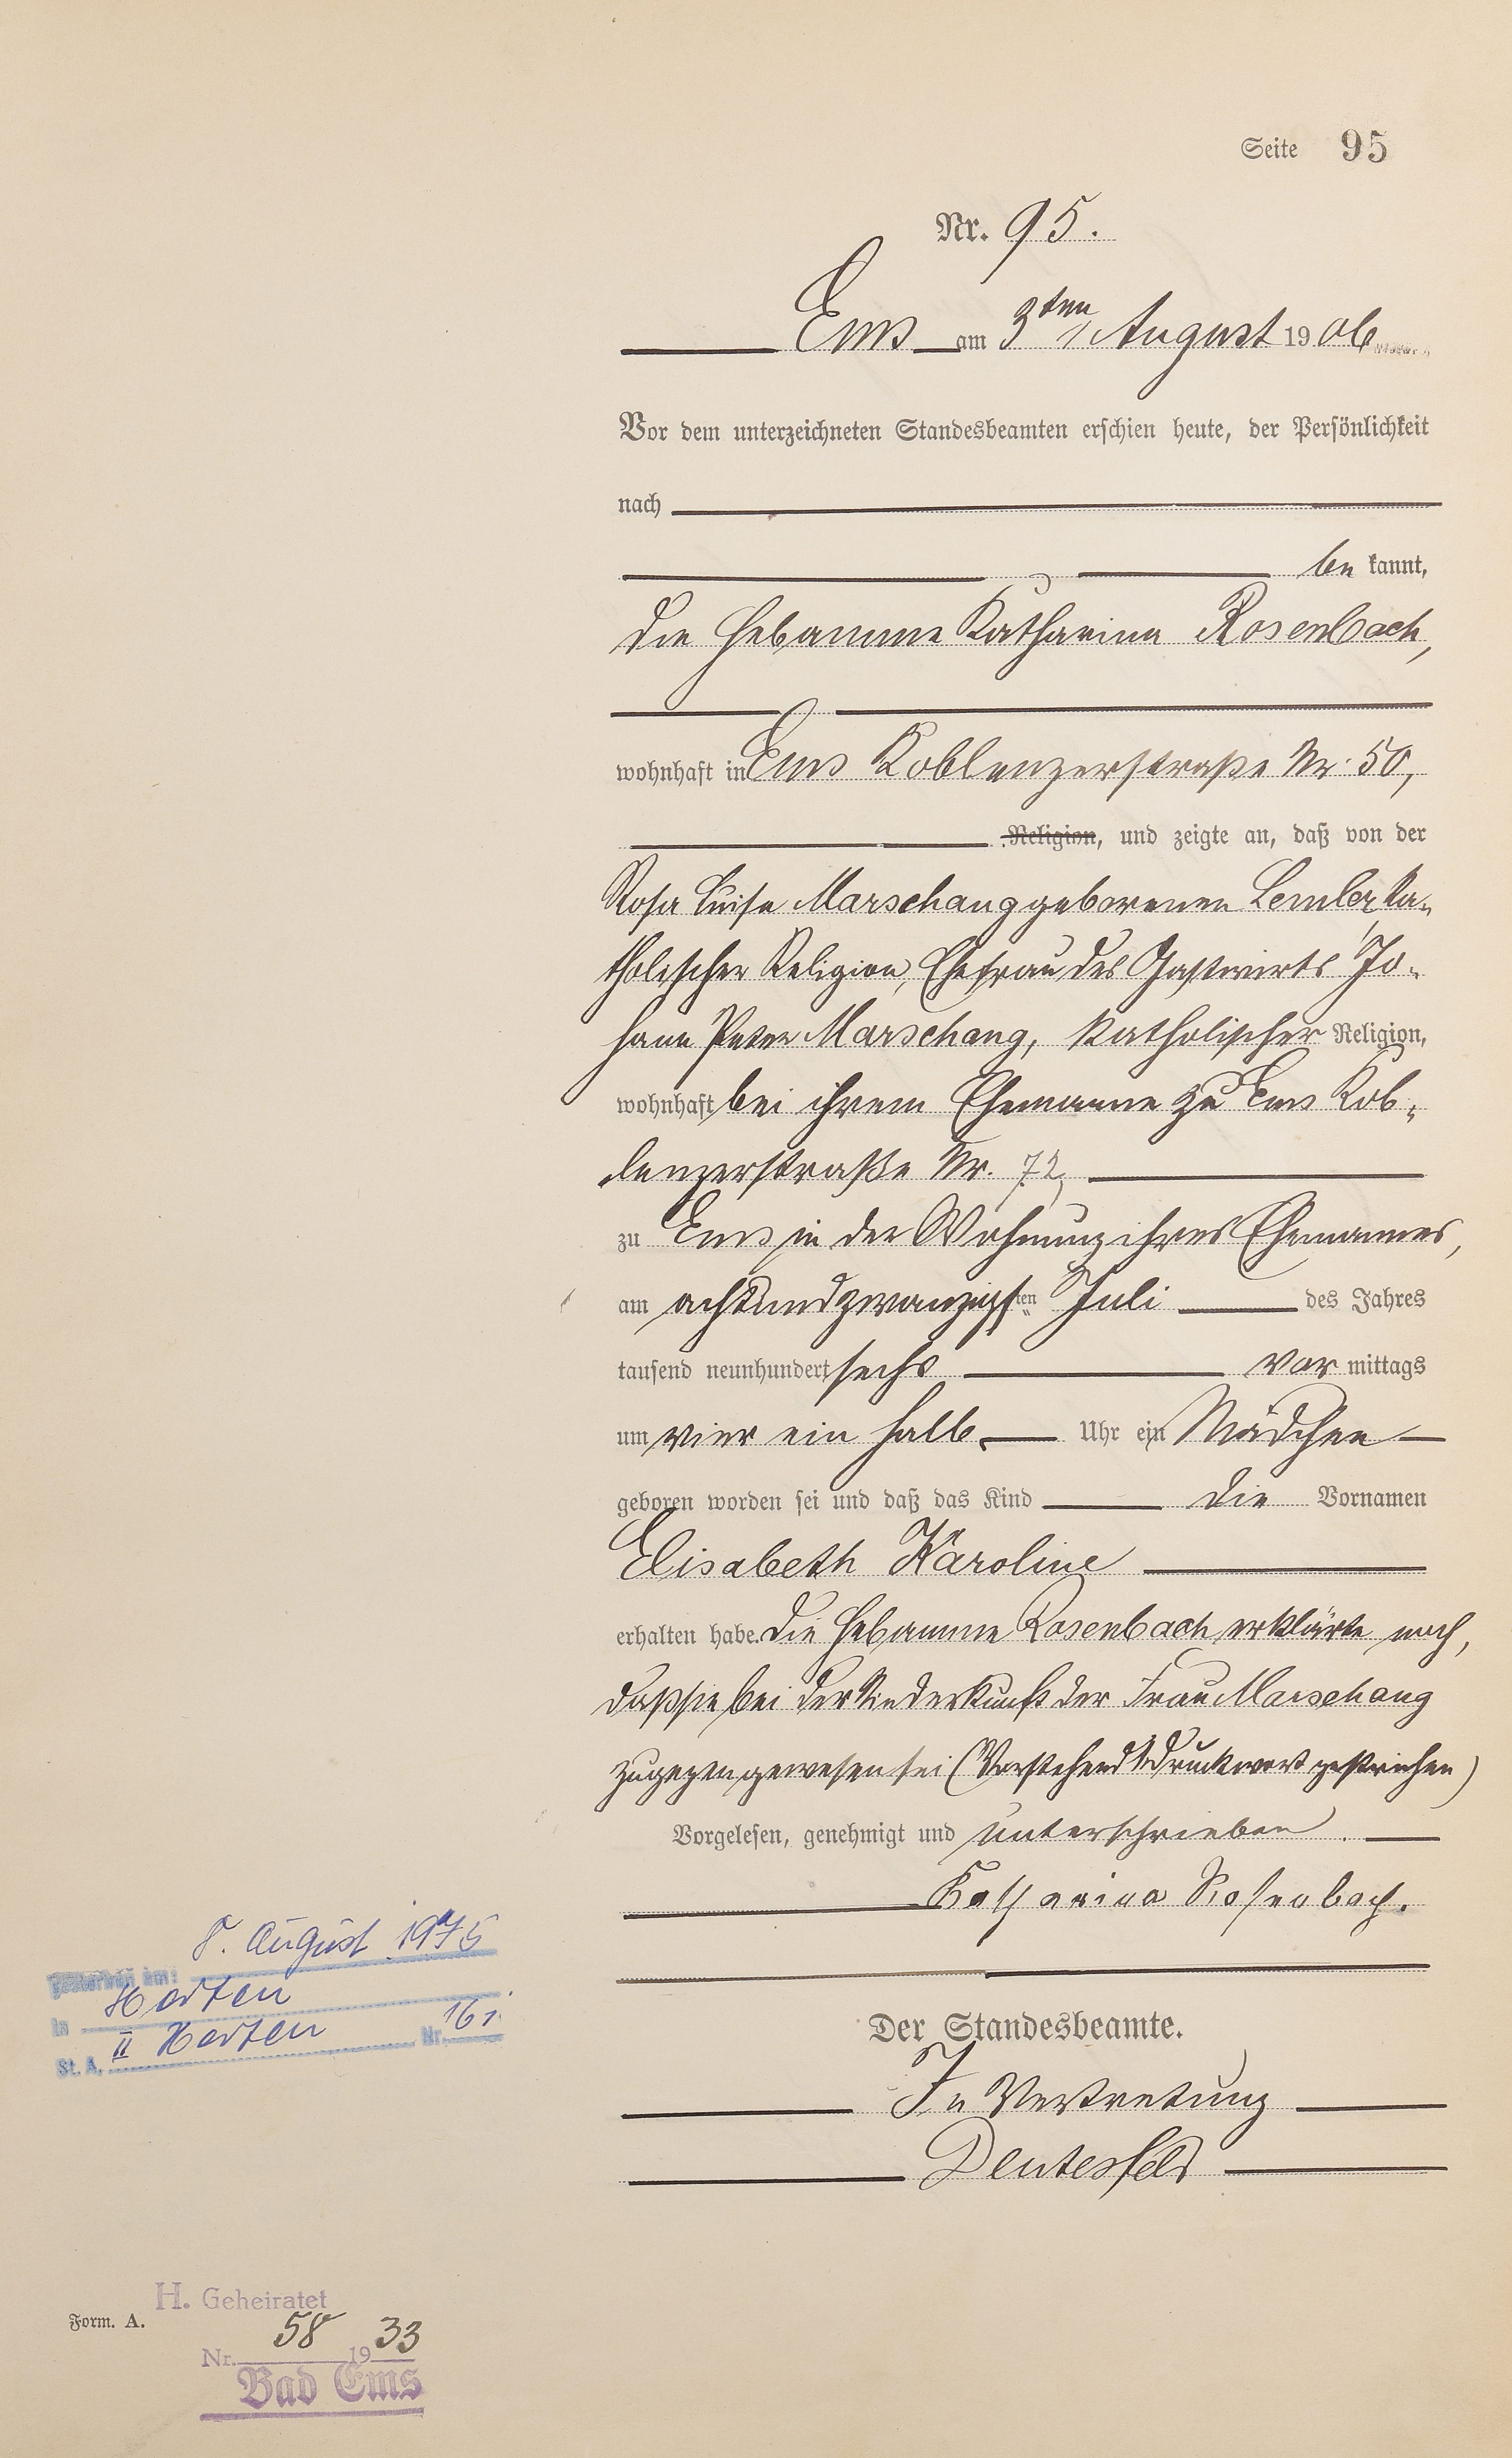 Seite 95
Nr. 95.
Ems am 3ten August 1906
Vor dem unterzeichneten Standesbeamten erschien heute, der Persönlichkeit
nach
bekannt,
die Hebamme Katharina Rosenbach,
wohnhaft in Ems Koblenzerstraße Nr. 50,
Religion, und zeigte an, daß von der
Rosa Luise Marschang geborenen Lemler, ka-
tholischer Religion, Ehefrau des Gastwirts Jo-
hann Peter Marschang, katholischer Religion,
wohnhaft bei ihrem Ehemanne zu Ems Kob-
lenzerstraße Nr. 72,
zu Ems in der Wohnung ihres Ehemannes,
am achtundzwanzigsten Juli des Jahres
tausend neunhundert sechs vormittags
um vier ein halb Uhr ein Mädchen
geboren worden sei und daß das Kind die Vornamen
Elisabeth Karoline
erhalten habe. Die Hebamme Rosenbach erklärte noch,
daß sie bei der Niederkunft der Frau Marschang
zugegen gewesen sei (Vorstehend 1 Druckwort gestrichen)
Vorgelesen, genehmigt und unterschrieben.
Katharina Rosenbach.
Der Standesbeamte.
In Vertretung
8. August 1975
Gestorben am:
in Herten
St. A. II Herten Nr.
H. Geheiratet
Form. A.
Nr. 58 1933
Bad Ems